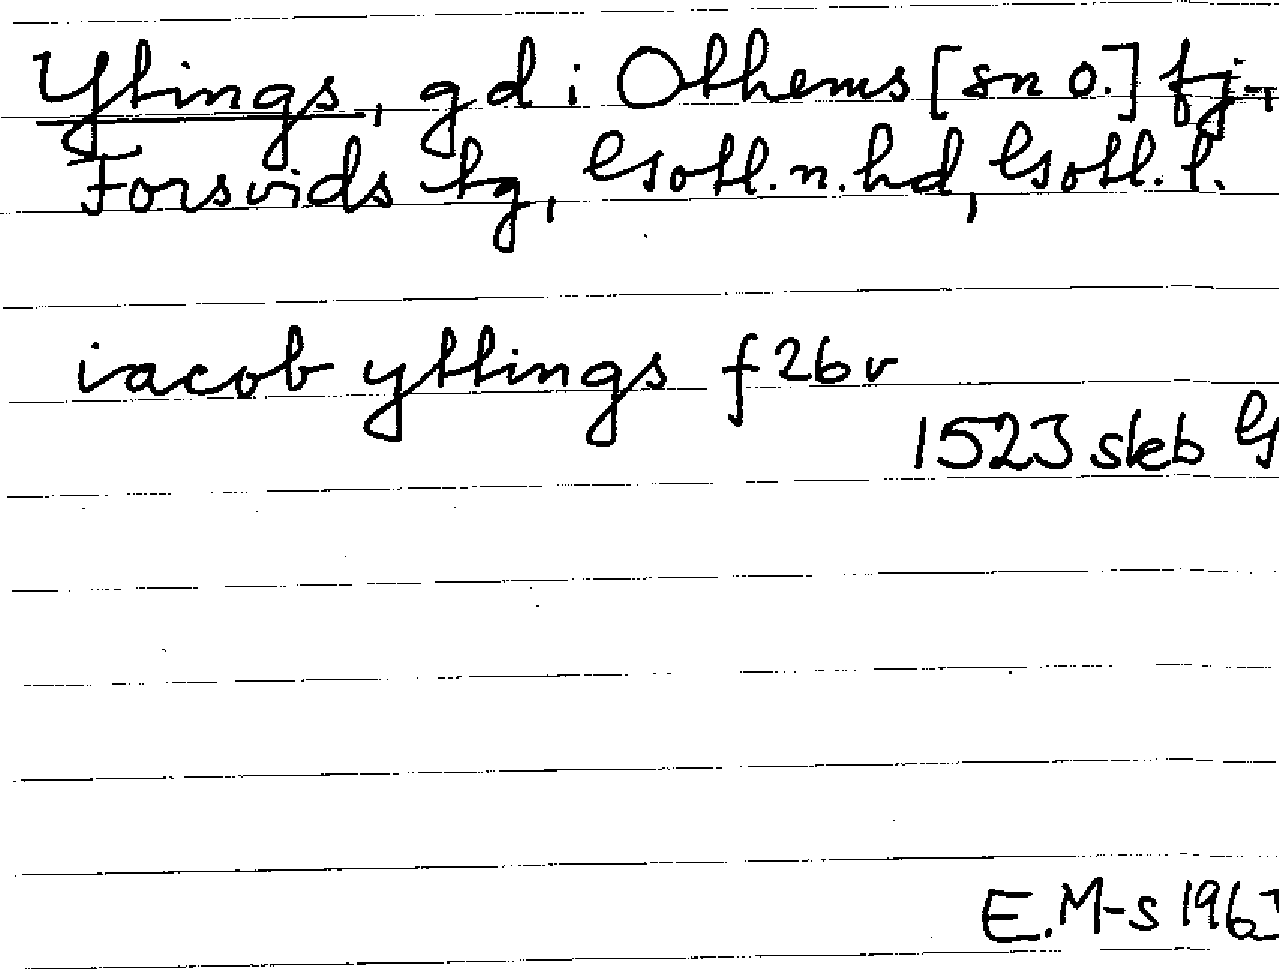 Ytings, gd i Othems [sn o.] fj.,
Forsvids tg, Gotl. n. hd, Gotl. l.
iacob yttings f 26 v
1523 skeb G
E. M-s 1963